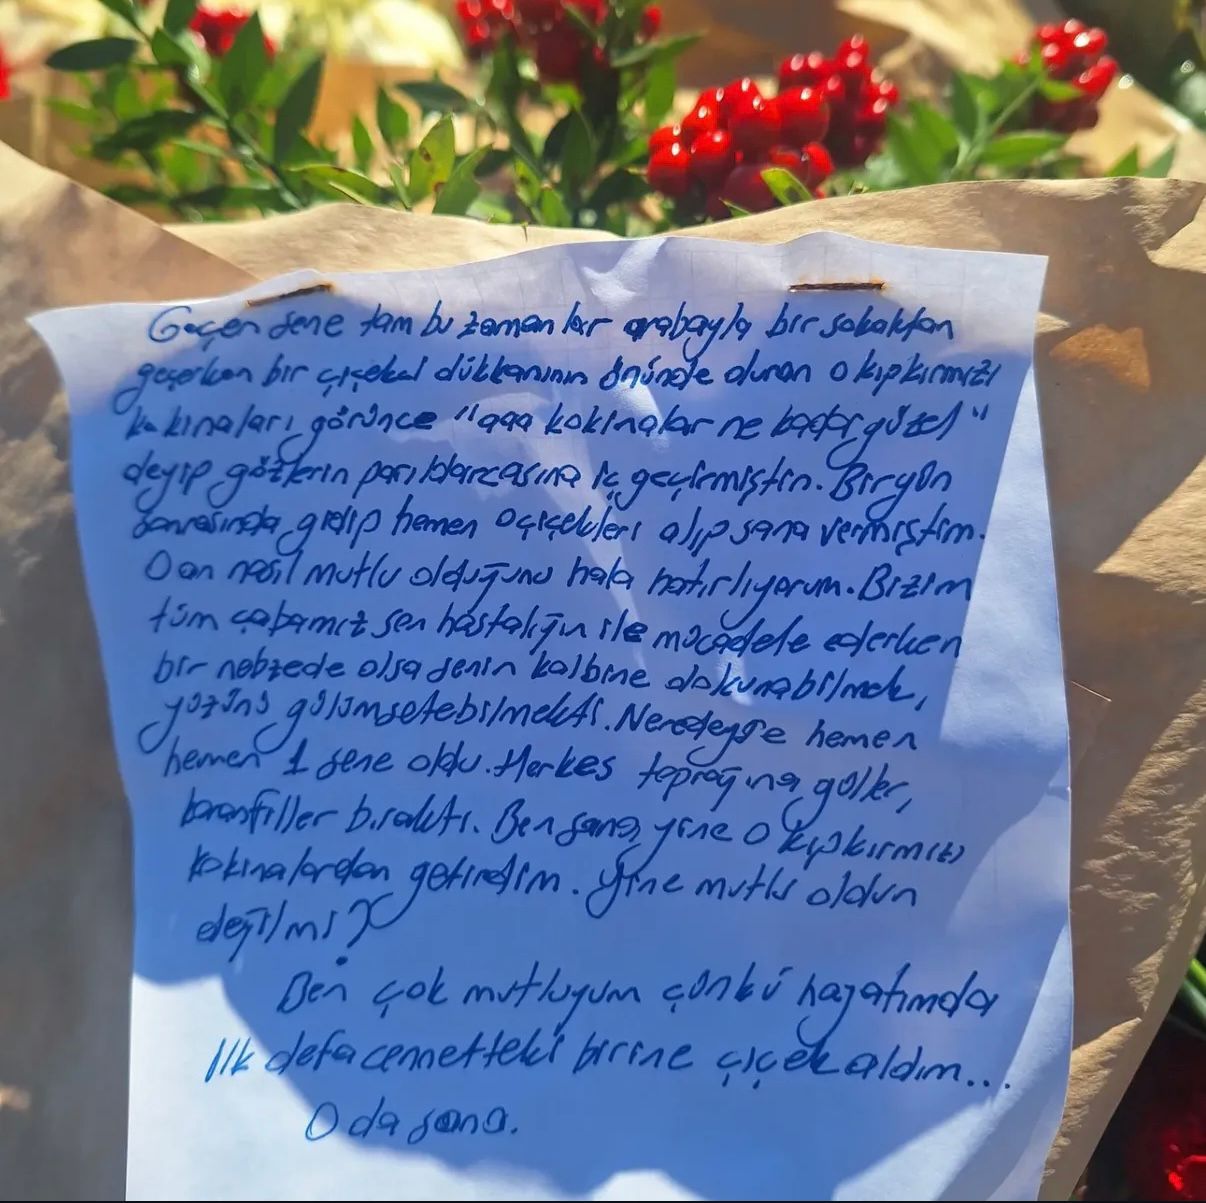 Geçen sene tam bu zamanlar arabayla bir sokaktan
geçerken bir çiçekci dükkanının önünde duran o kıpkırmızı
kokinaları görünce "aaa kokinalar ne kadar güzel"
deyip gözlerin parıldarcasına iç geçirmiştin. Birgün
sonrasında gidip hemen o çiçekleri alıp sana vermiştim.
O an nasıl mutlu olduğunu hala hatırlıyorum. Bizim
tüm çabamız sen hastalığın ile mücadele ederken
bir nebzede olsa senin kalbine dokunabilmek,
yüzünü gülümsetebilmekti. Neredeyse hemen
hemen 1 sene oldu. Herkes toprağına güller,
karanfiller bıraktı. Ben sana yine o kıpkırmızı
kokinalardan getirdim. Yine mutlu oldun
değilmi?
Ben çok mutluyum çünkü hayatımda
ilk defa cennetteki birine çiçek aldım...
O da sana.